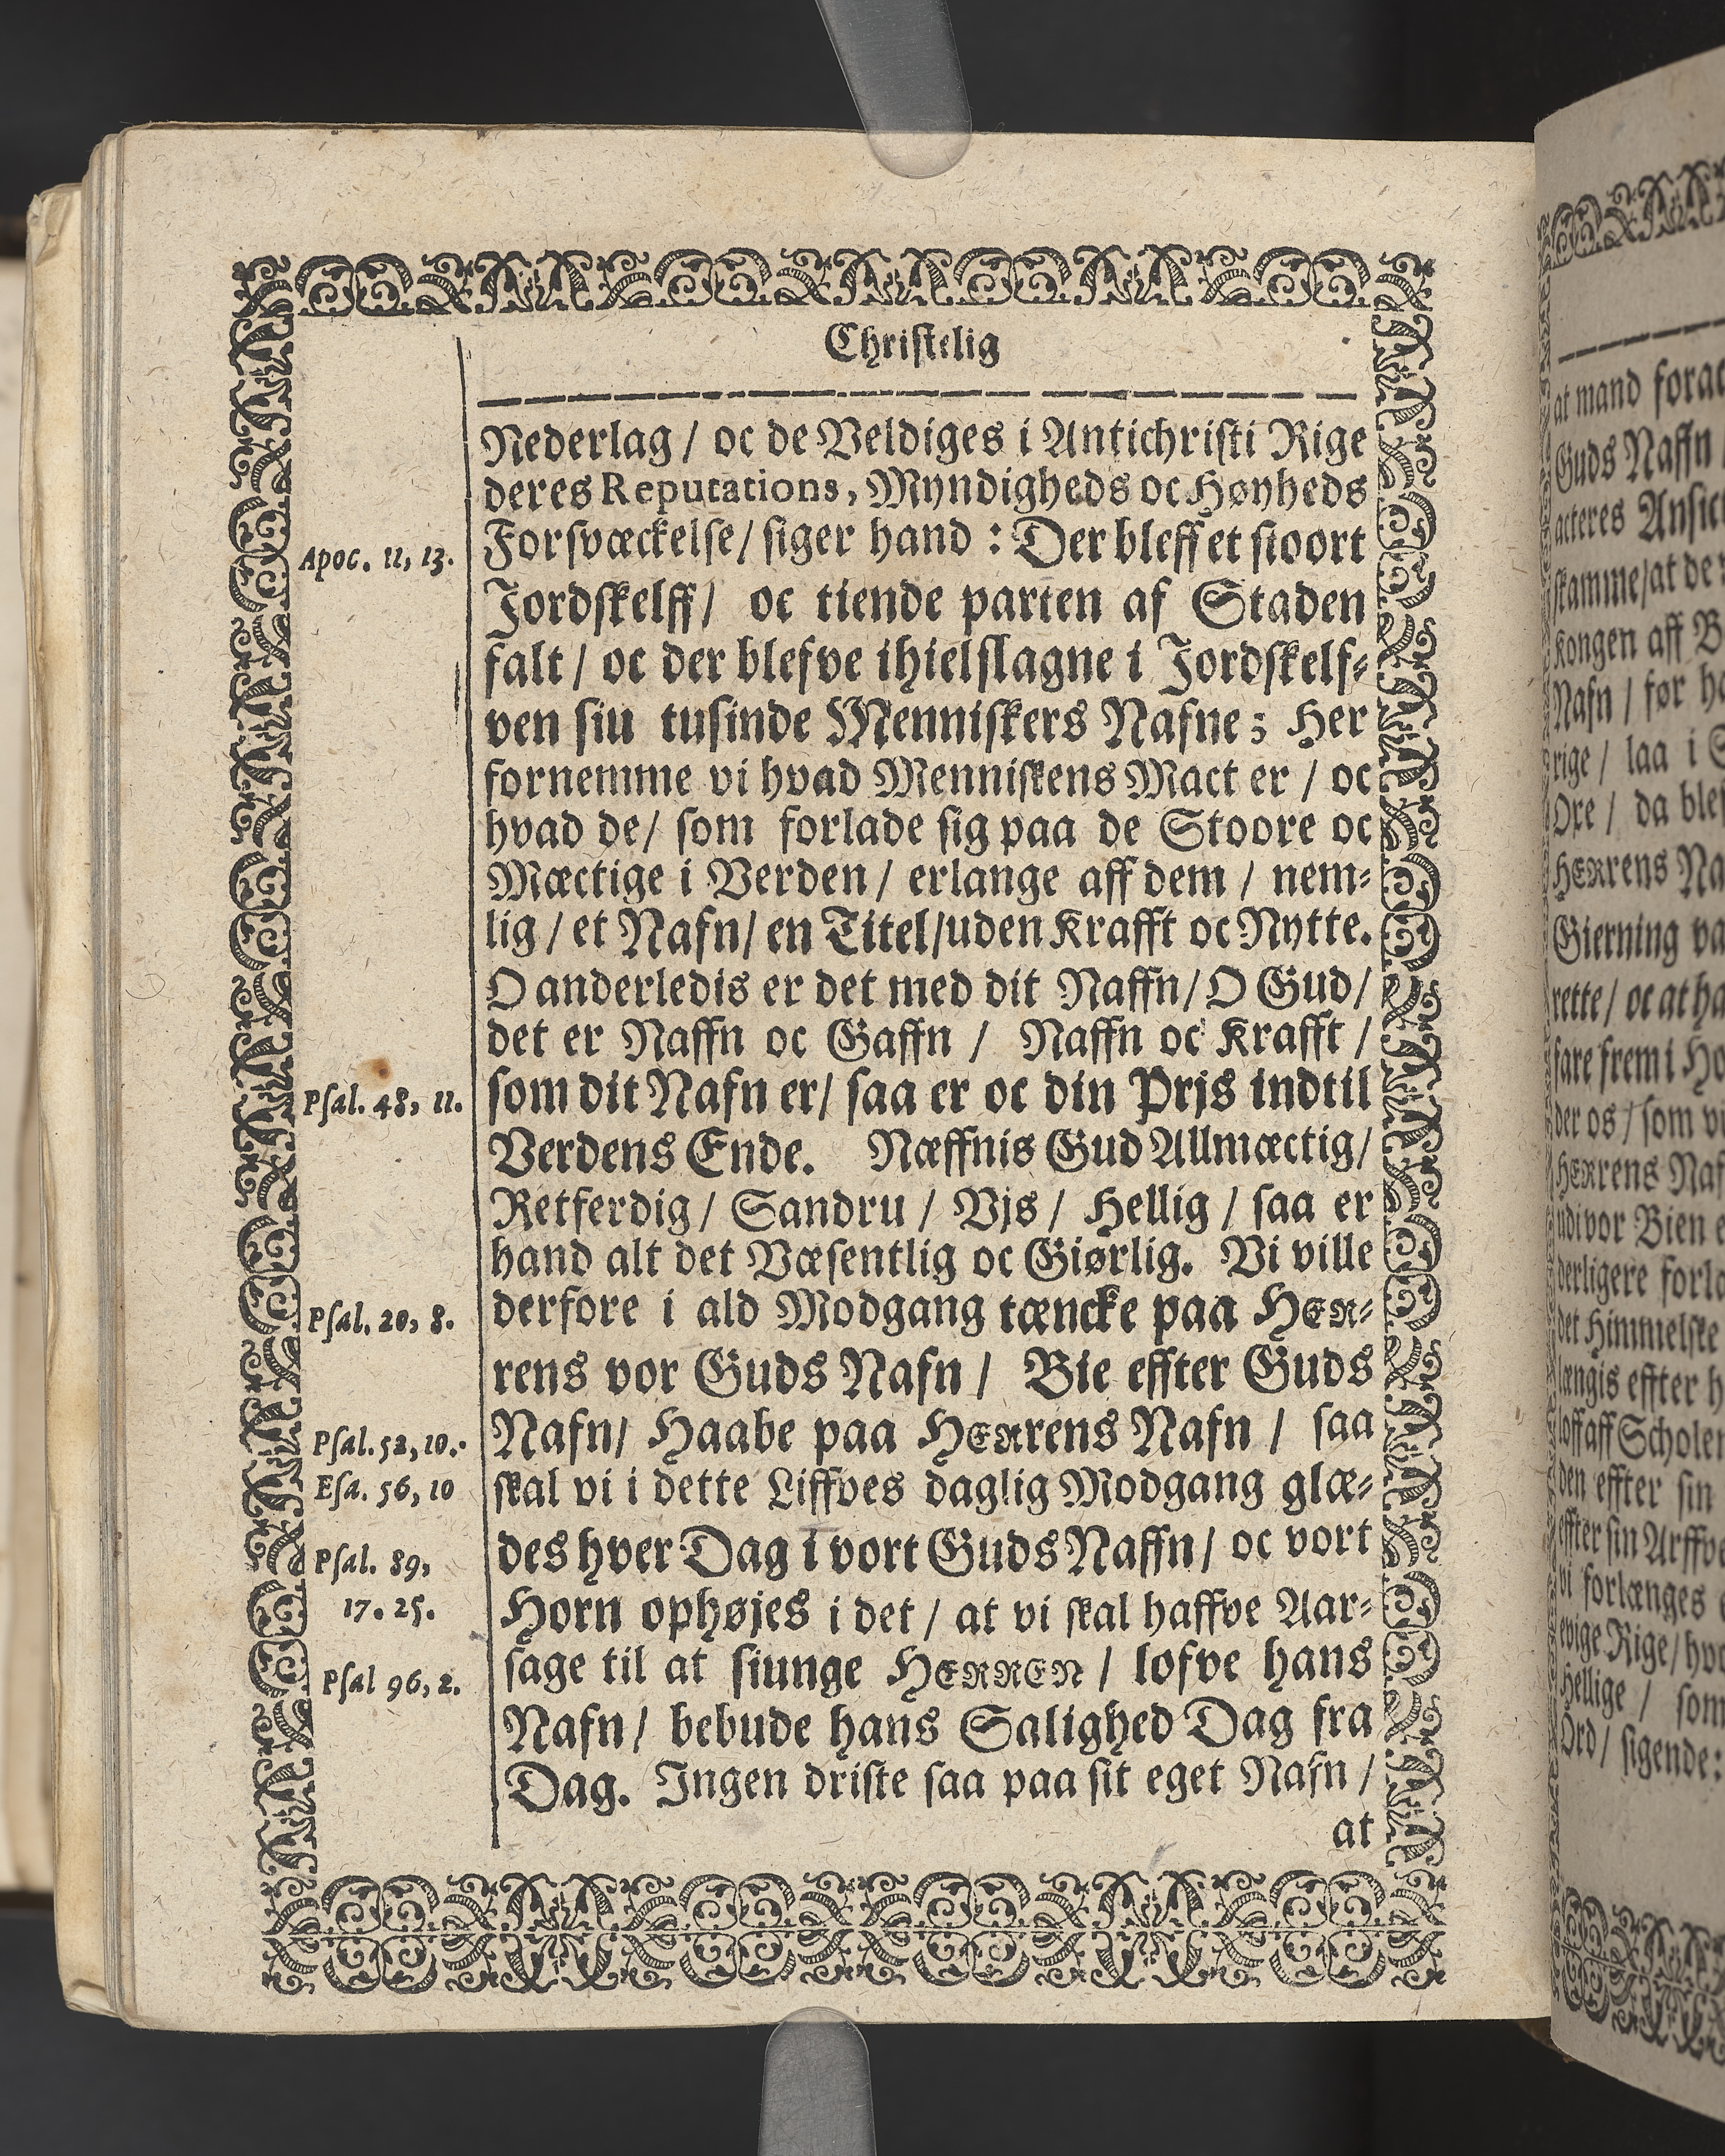 Christelig
Nederlag / oc de Veldiges i Antichristi Rige
deres Reputations, Myndigheds oc Høyheds
Forsvæckelse / siger hand : Der bleff et stoort
Apoc. 11, 13.
Jordskelff / oc tiende parten af Staden
falt / oc der blefve ihielslagne i Jordskelf⸗
ven siu tusinde Menniskers Nafne; Her
fornemme vi hvad Menniskens Mact er / oc
hvad de / som forlade sig paa de Stoore oc
Mæctige i Verden / erlange aff dem / nem⸗
lig / et Nafn / en Titel / uden Krafft oc Nytte.
O anderledis er det med dit Naffn / O Gud /
det er Naffn oc Gaffn / Naffn oc Krafft /
som dit Nafn er / saa er oc din Prjs indtil
Psal. 48, 11.
Verdens Ende. Næffnis Gud Allmæctig /
Retferdig / Sandru / Vjs / Hellig / saa er
hand alt det Væsentlig oc Giørlig. Vi ville
derfore i ald Modgang tæncke paa HER⸗
Psal. 20, 8.
rens vor Guds Nafn / Bie effter Guds
Nafn / Haabe paa HERrens Nafn / saa
Psal. 52, 10.
skal vi i dette Liffves daglig Modgang glæ⸗
Esa. 56, 10
des hver Dag i vort Guds Naffn / oc vort
Psal. 89,
Horn ophøjes i det / at vi skal haffve Aar⸗
17. 25.
sage til at siunge HERREN / lofve hans
Psal 96, 2.
Nafn / bebude hans Salighed Dag fra
Dag. Ingen driste saa paa sit eget Nafn /
at
at mand forac
Guds Naffn
acteres Ansic
skamme / at de
Kongen aff B
Nafn / før h
rige / laa i S
Ore / da ble
HERrens Na
Gierning va
rette / oc at ha
fare frem i Ho
der os / som vi
HERrens Naf
udi vor Bien e
derligere forla
det Himmelske
længis effter h
loff aff Scholen
den effter sin
effter sin Arffve
vi forlænges
evige Rige / hvo
Hellige / som
Ord / sigende: